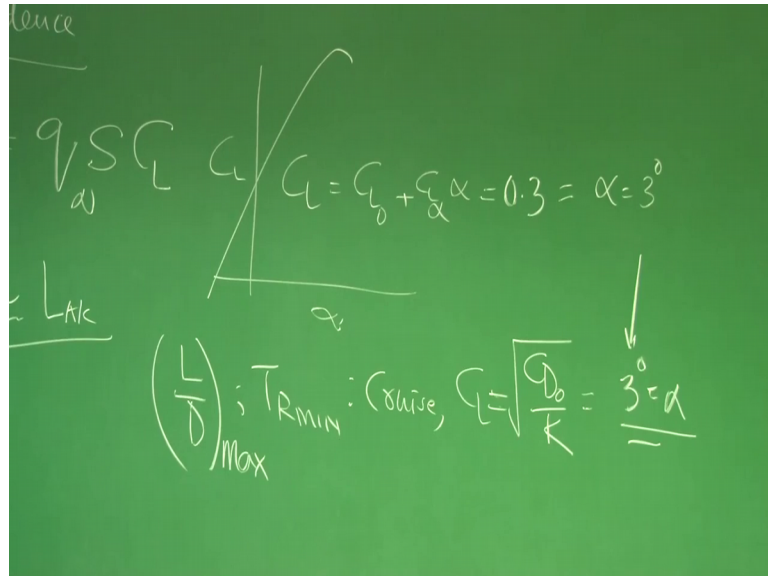 dence
= q∞ S C_L
C_L
C_L = C_L0 + C_Lα α = 0.3 = α = 3°
α
= L_A/C
(L/D)_Max ; T_RMIN : Cruise, C_L = √(C_D0/K) = 3° = α